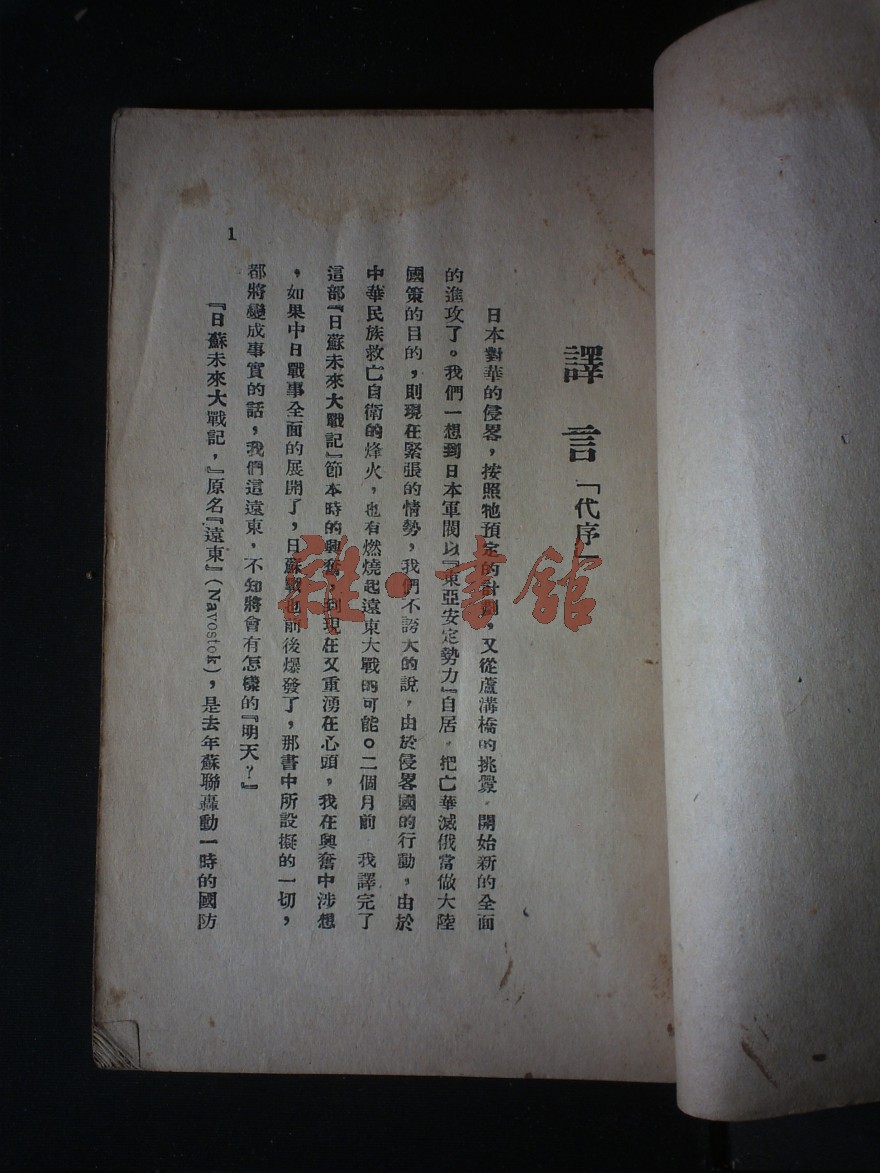 譯言「代序」
日本對華的侵畧，按照牠預定的計劃，又從蘆溝橋的挑釁，開始新的全面
的進攻了。我們一想到日本軍閥以『東亞安定勢力』自居，把亡華滅俄當做大陸
國策的目的，則現在緊張的情勢，我們不誇大的說，由於侵畧國的行動，由於
中華民族救亡自衛的烽火，也有燃燒起遠東大戰的可能。二個月前　我譯完了
這部『日蘇未來大戰記』節本時的興奮，到現在又重湧在心頭，我在興奮中涉想
，如果中日戰事全面的展開了，日蘇戰也前後爆發了，那書中所設擬的一切，
都將變成事實的話，我們這遠東，不知將會有怎樣的『明天？』
『日蘇未來大戰記，』原名『遠東』(Navostok)，是去年蘇聯轟動一時的國防
1
雜·書館